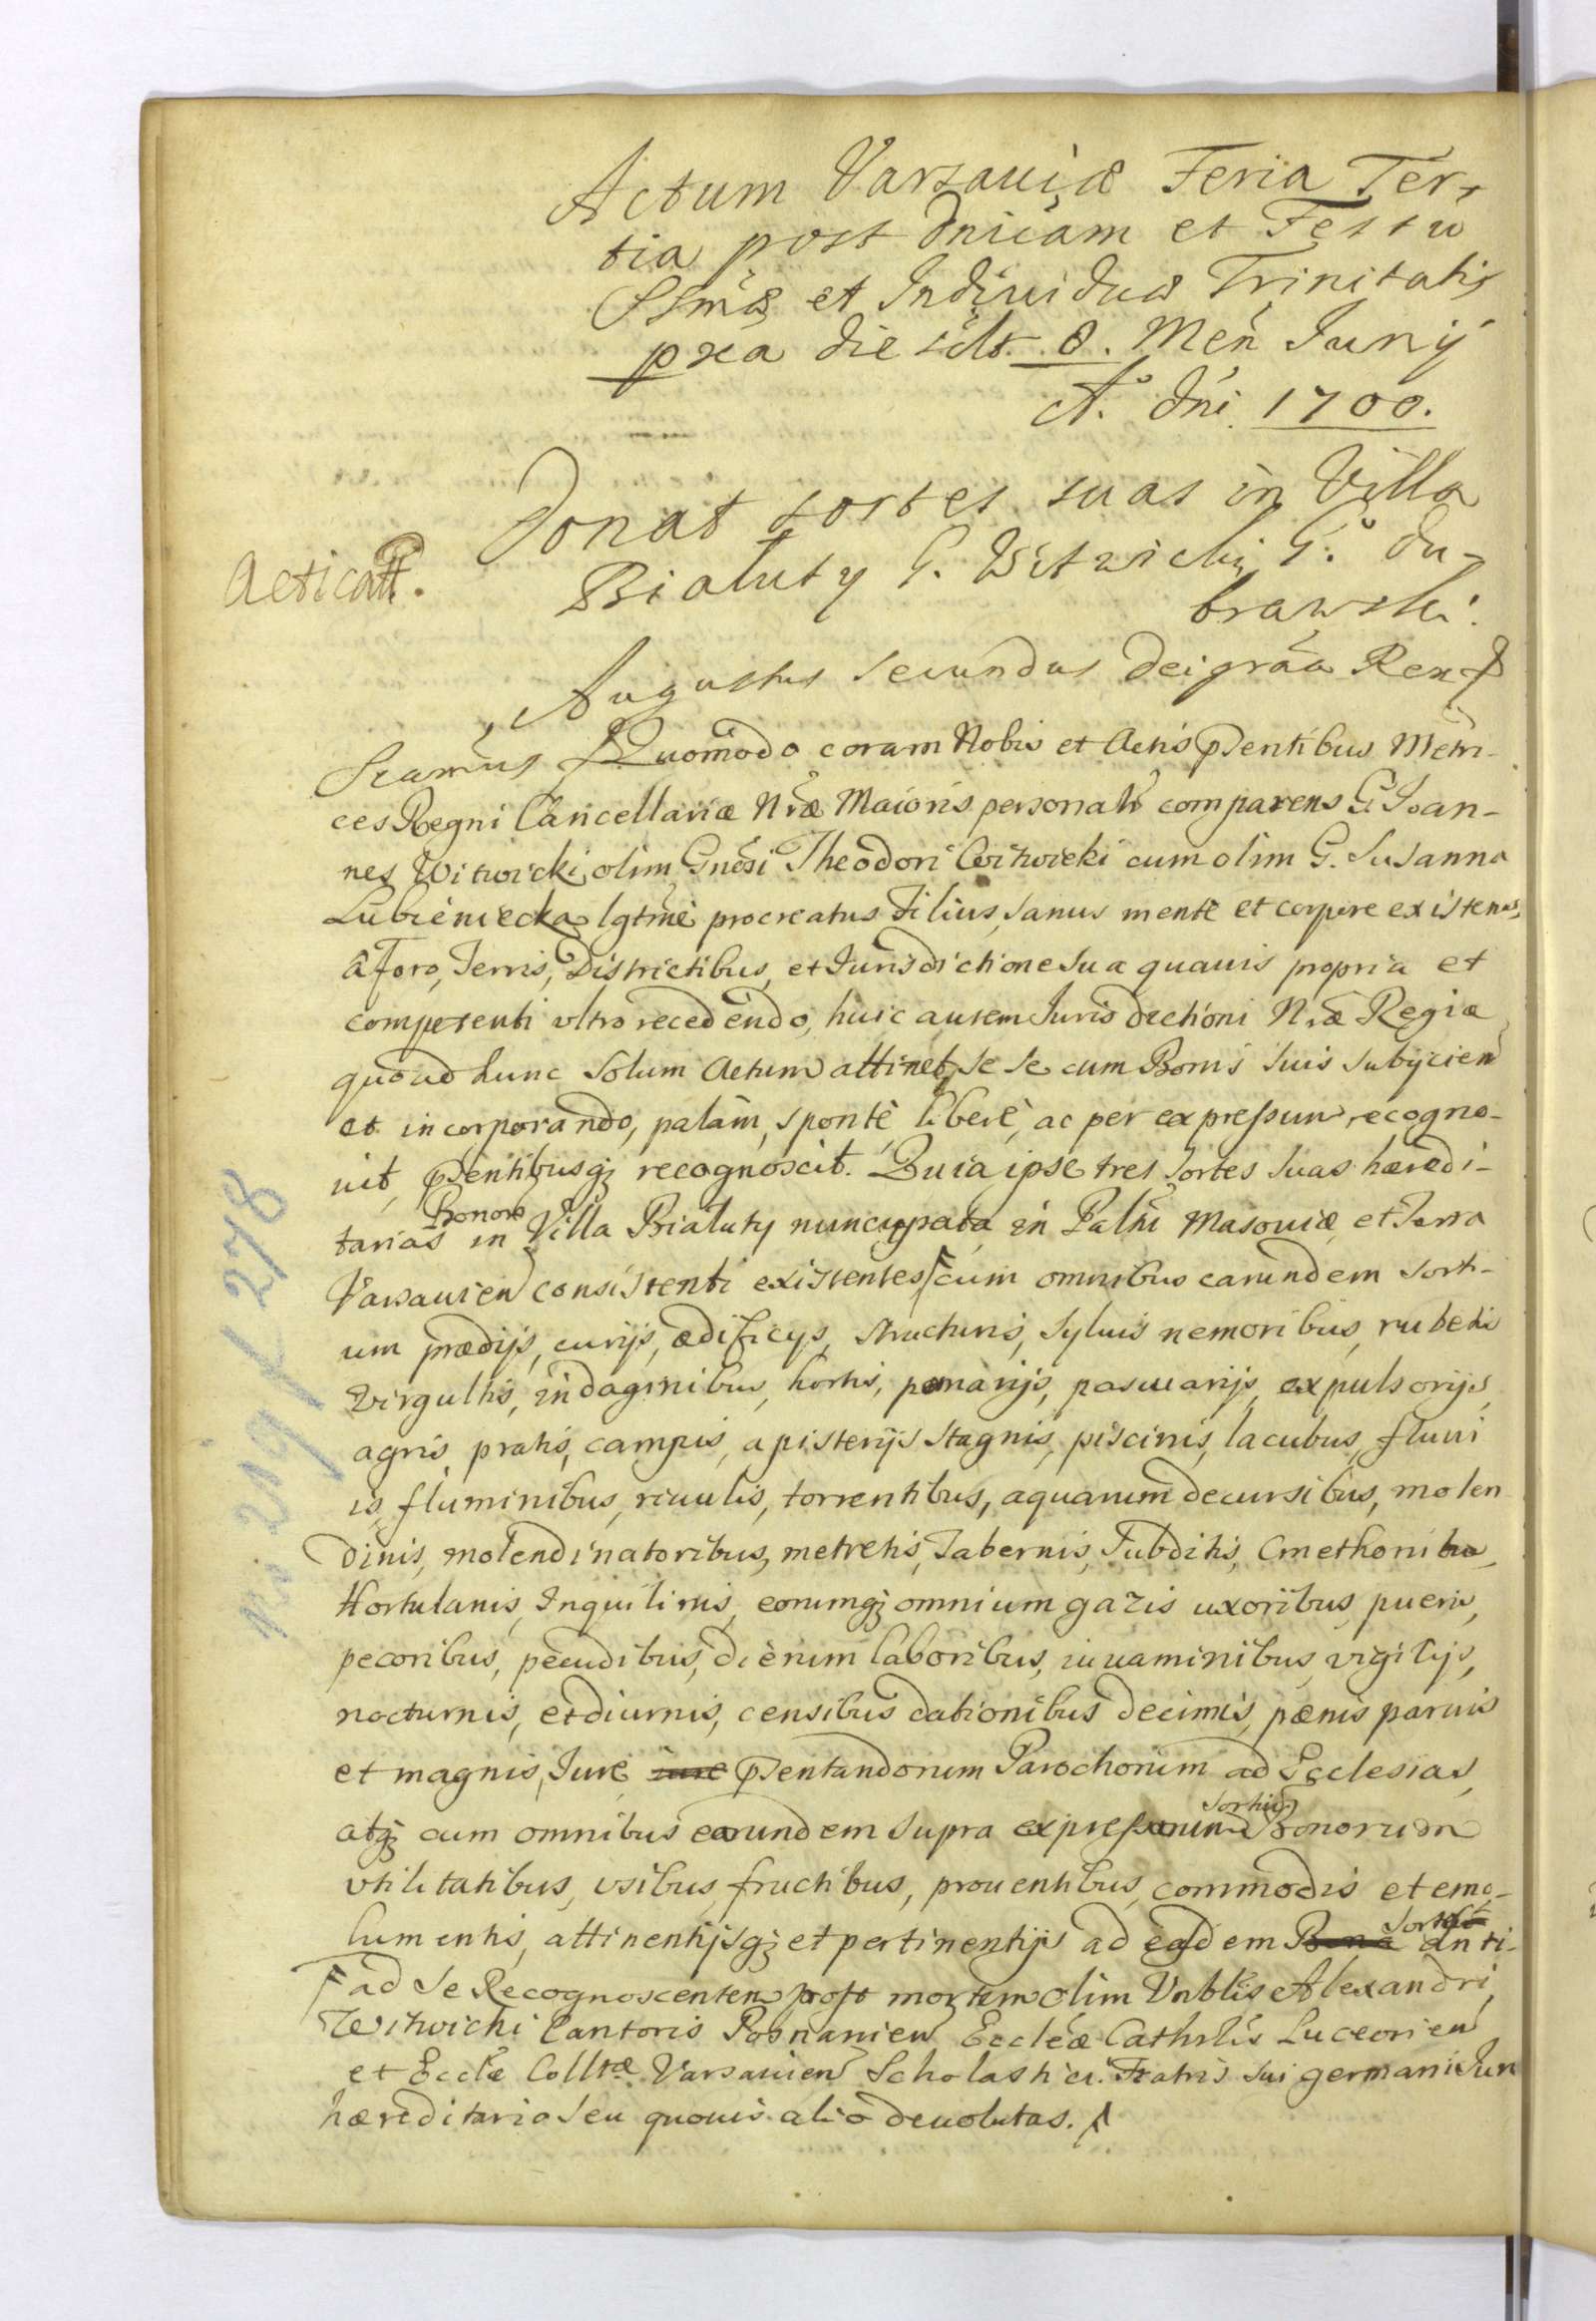 Actum Varsauiæ Feria Ter-
tia post Dnicam et Festu
SSmæ et Indiuiduæ Trinitatis
pxa die sclt. 8. Men Junÿ
A.º Dni 1700.
Donat sortes suas in Villa
Bialuty G. Witwicki G.º Du-
browski.
Acticatt.
Augustus Secundus Dei grãa Rex
Scamus Quomodo coram Nobis et Actis pñtibus Metri-
ces Regni Cancellariæ Nræ Maioris personalr comparens G. Joan-
nes Witwicki, olim Gnosi Theodori Witwicki cum olim G. Susanna
Lubieniecka lgtme procreatus Filius, sanus mente et corpore existens,
â Foro, Terris, Districtibus, et Jurisdictione sua quauis propria et
competenti vltro recedendo, huic autem Jurisdictioni Nræ Regiæ
quoad hunc solum Actum attinet, se se cum Bonis suis subijcien
et incorporando, palàm, spontè, liberè, ac per expressum recogno-
uit, psentibusq; recognoscit. Quia ipse tres sortes suas hæredi-
tarias in Bonor Villa Bialuty nuncupata in Paltu Masouiæ, et Terra
Varsauien consistenti existentes, cum omnibus earundem sorti-
um prædijs, curijs, ædificijs, structuris, syluis nemoribus, rubetis
virgultis, indaginibus, hortis, pomarijs, pascuarijs, expulsorijs,
agris, pratis, campis, apisterijs stagnis, piscinis, lacubus, fluui
is, fluminibus, riuulis, torrentibus, aquarum decursibus, molen
dinis, molendinatoribus, metretis, Tabernis, Subditis, Cmethonibus,
Hortulanis, Inquilinis, eorumq; omnium gazis uxoribus, pueris,
pecoribus, pecudibus, dierum laboribus, iuuaminibus, vigilijs,
nocturnis, et diurnis, censibus dationibus decimis, pænis paruis
et magnis, Jure iure psentandorum Parochorum ad Ecclesias,
atq; cum omnibus earundem supra expressarum Sortiu Bonorum
vtilitatibus, vsibus, fructibus, prouentibus, commodis et emo-
lumentis, attinentijsq; et pertinentijs ad eadem Bona Sortes anti-
ad se Recognoscentem post mortem olim Vnblis Alexandri
Witwicki Cantoris Posnanien Eccleæ Cathrlis Luceorien
et Eccle Colltæ Varsauien Scholastici Fratris sui germani Jure
hæreditario seu quouis alio deuolutas.